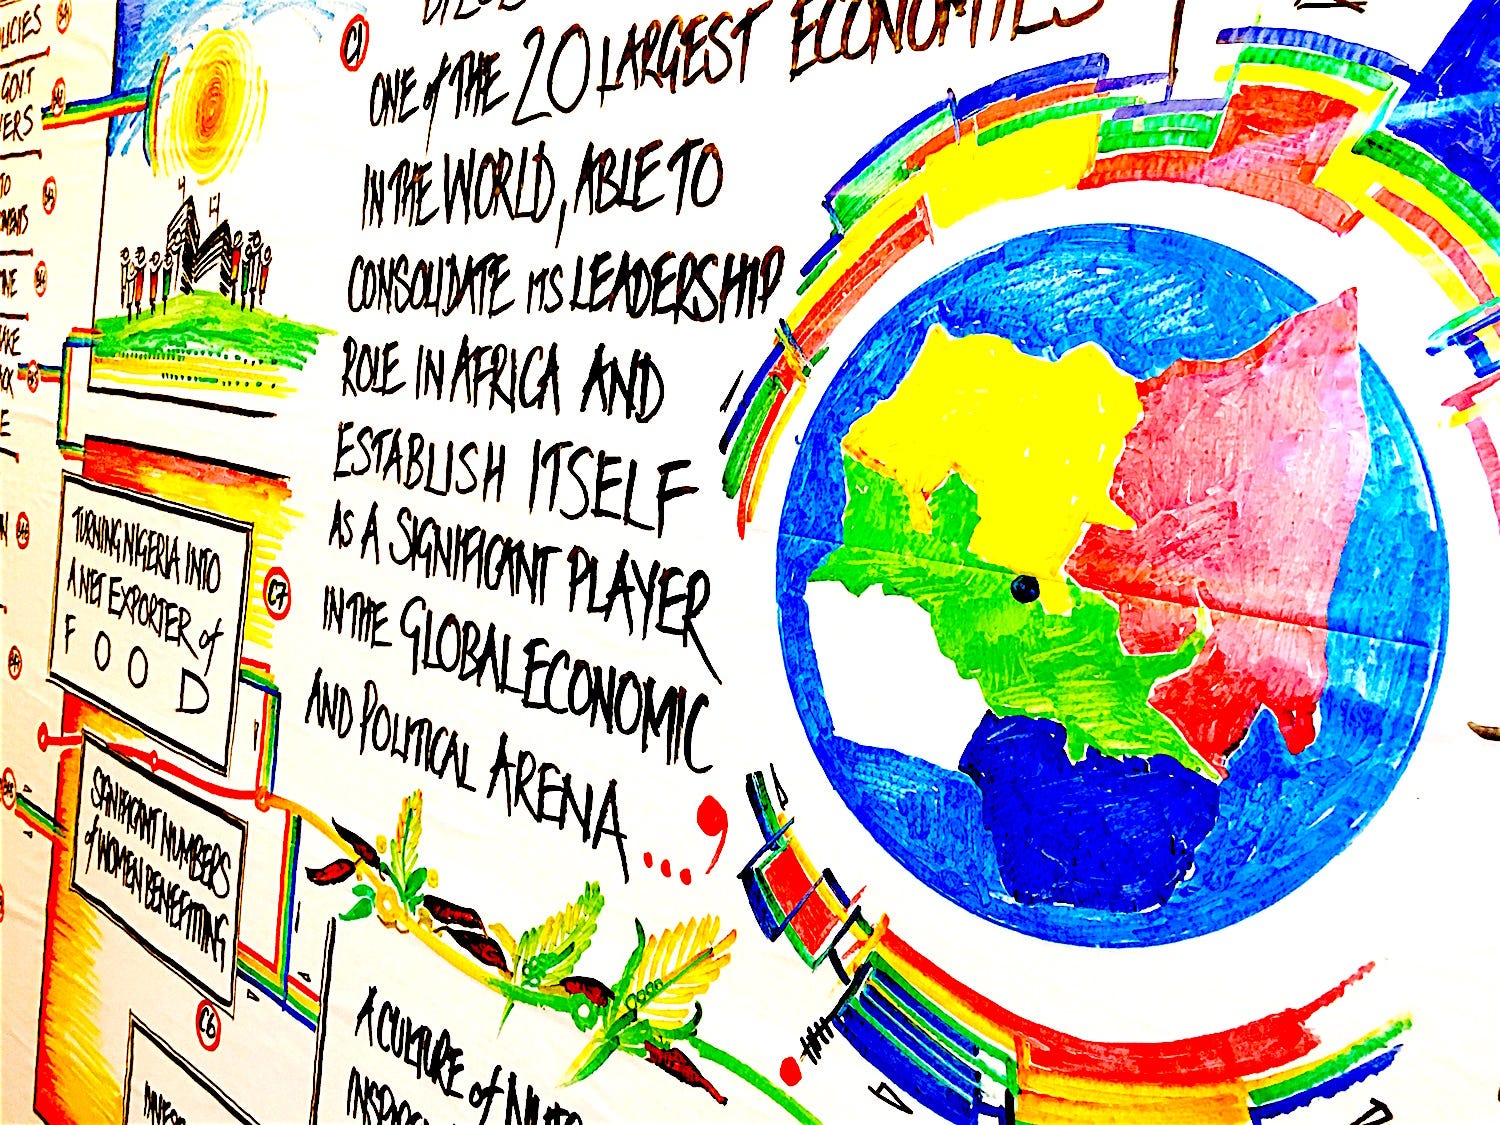 C1
ONE of THE 20 LARGEST ECONOMIES
IN THE WORLD, ABLE TO
CONSOLIDATE ITS LEADERSHIP
ROLE IN AFRICA AND
ESTABLISH ITSELF
AS A SIGNIFICANT PLAYER
IN THE GLOBAL ECONOMIC
AND POLITICAL ARENA
GOV'T
TO
TURNING NIGERIA INTO
A NET EXPORTER of
FOOD
C7
SIGNIFICANT NUMBERS
of WOMEN BENEFITTING
C6
A CULTURE of